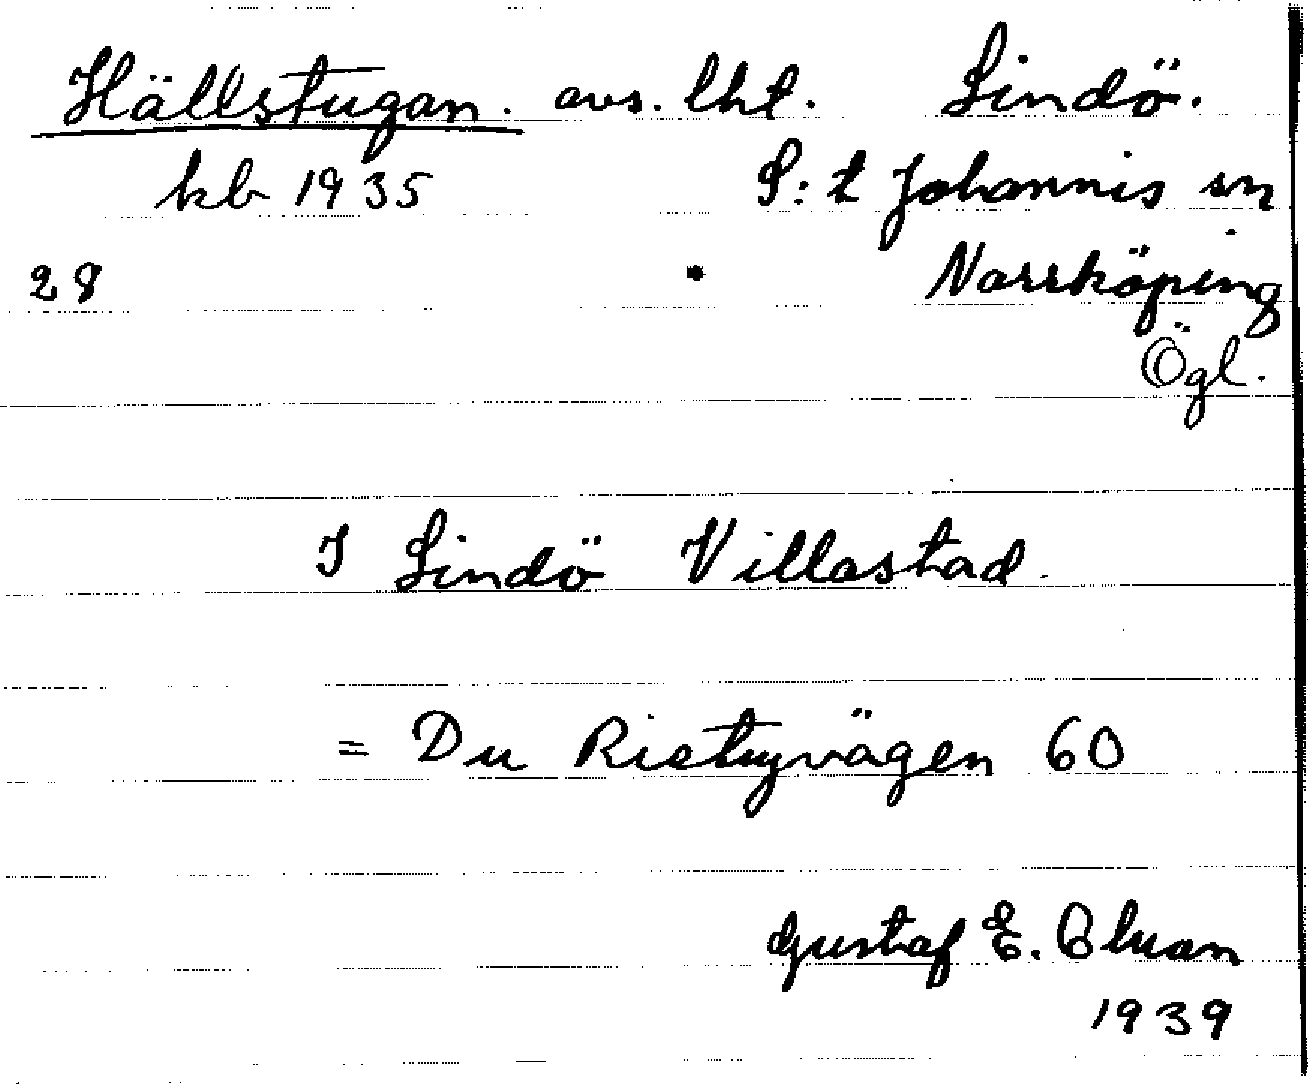 Hällstugan. avs. lht. Lindö.
kb 1935 S:t Johannis sn
28 Norrköping
Ögl.
I Lindö Villastad
= Du Ristyvägen 60
Gustaf E.
1939